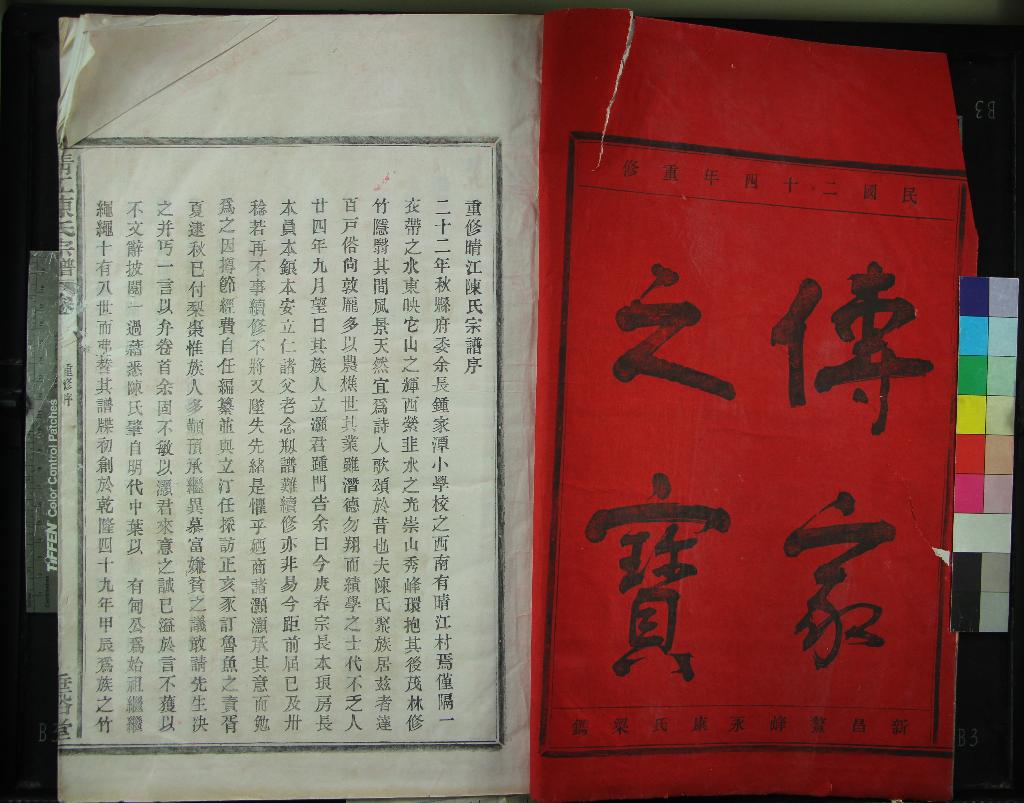 民國二十四年重修
傳家
之寶
新昌鰲峰永康氏梁鐫
重修晴江陳氏宗譜序
二十二年秋縣府委余長鍾家潭小學校之西南有晴江村焉僅隔一
衣帶之水東映它山之輝西縈韭水之光崇山秀峰環抱其後茂林修
竹隱翳其間風景天然宜爲詩人歌頌於昔也夫陳氏聚族居茲者達
百戶俗尚敦龐多以農樵世其業雖潛德勿翔而績學之士代不乏人
廿四年九月望日其族人立灝君踵門告余曰今庚春宗長本琅房長
本員本銀本安立仁諸父老念剏譜難續修亦非易今距前屆已及卅
稔若再不事續修不將又墜失先緒是懼乎迺商諸灝灝承其意而勉
爲之因撙節經費自任編纂並與立汀任採訪正亥豕訂魯魚之責胥
夏逮秋已付梨棗惟族人多顢頇承繼異慕富嫌貧之議敢請先生决
之幷丐一言以弁卷首余固不敏以灝君來意之誠已溢於言不獲以
不文辭披閱一過藉悉陳氏肇自明代中葉以 有甸公爲始祖繼繼
繩繩十有八世而弗替其譜牒初創於乾隆四十九年甲辰爲族之竹
陳氏宗譜
卷
重修序
堂
TIFFEN Color Control Patches
B3
B3
B3